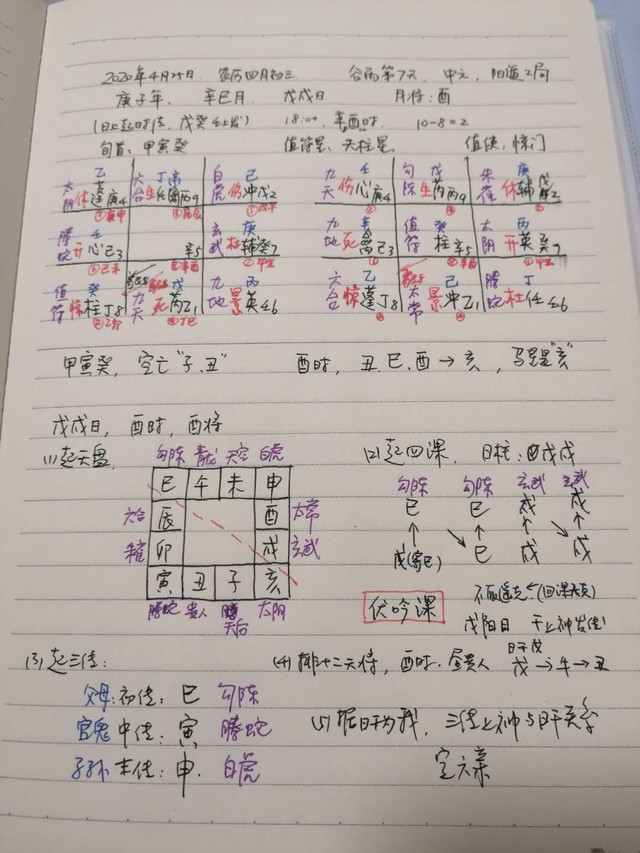 2020年4月25日 农历四月初三 谷雨第7天, 中元, 阳遁2局
庚子年, 辛巳月 戊戌日 月将:酉
(日上起时法, 戊癸壬上发) 18:00, 辛酉时. 10-8=2
旬首: 甲寅癸 值符星、天柱星 值使, 惊门
乙 六 丁 白 己 九 壬 勾 戊 朱 庚
太阴 休蓬庚4 合生任 丙9 虎伤冲戊2 天伤心庚4 陈生芮丙9 雀休辅戊2
腾蛇 开心己3 辛5 玄武 庚 杜辅癸7 九地 死 己3 值符 癸 柱辛5 太阴 丙 开英癸7
值符 癸 惊柱丁8 九天 死芮乙1 九地 丙 景英壬6 六合 乙 惊蓬丁8 太常 己 景冲乙1 腾蛇 丁 杜任壬6
甲寅癸, 空亡"子、丑" 酉时, 丑、巳、酉→亥, 马星是"亥"
戊戌日, 酉时, 酉将
(1)起天盘 勾陈 青龙 天空 白虎 (2)起四课. 日柱:戊戌
巳 午 未 申 勾陈 勾陈 玄武 玄武
六合 辰 酉 太常 巳 巳 戌 戌
卯 戌 玄武 戊(寄巳) 巳 戌 戌
寅 丑 子 亥 伏吟课
腾蛇 贵人 天后 太阴 戊阳日 干上神发传
(3)起三传: (4)排十二天将, 酉时. 昼贵人 日干戊 戊→牛→丑
父母: 初传: 巳 勾陈
官鬼 中传: 寅 腾蛇 (5)据日干为我, 三传上神与日干关系
子孙 末传: 申. 白虎 定六亲